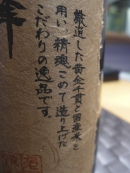 厳選した黄金千貫と国産米を
用い、精魂こめて造り上げた
こだわりの逸品です。